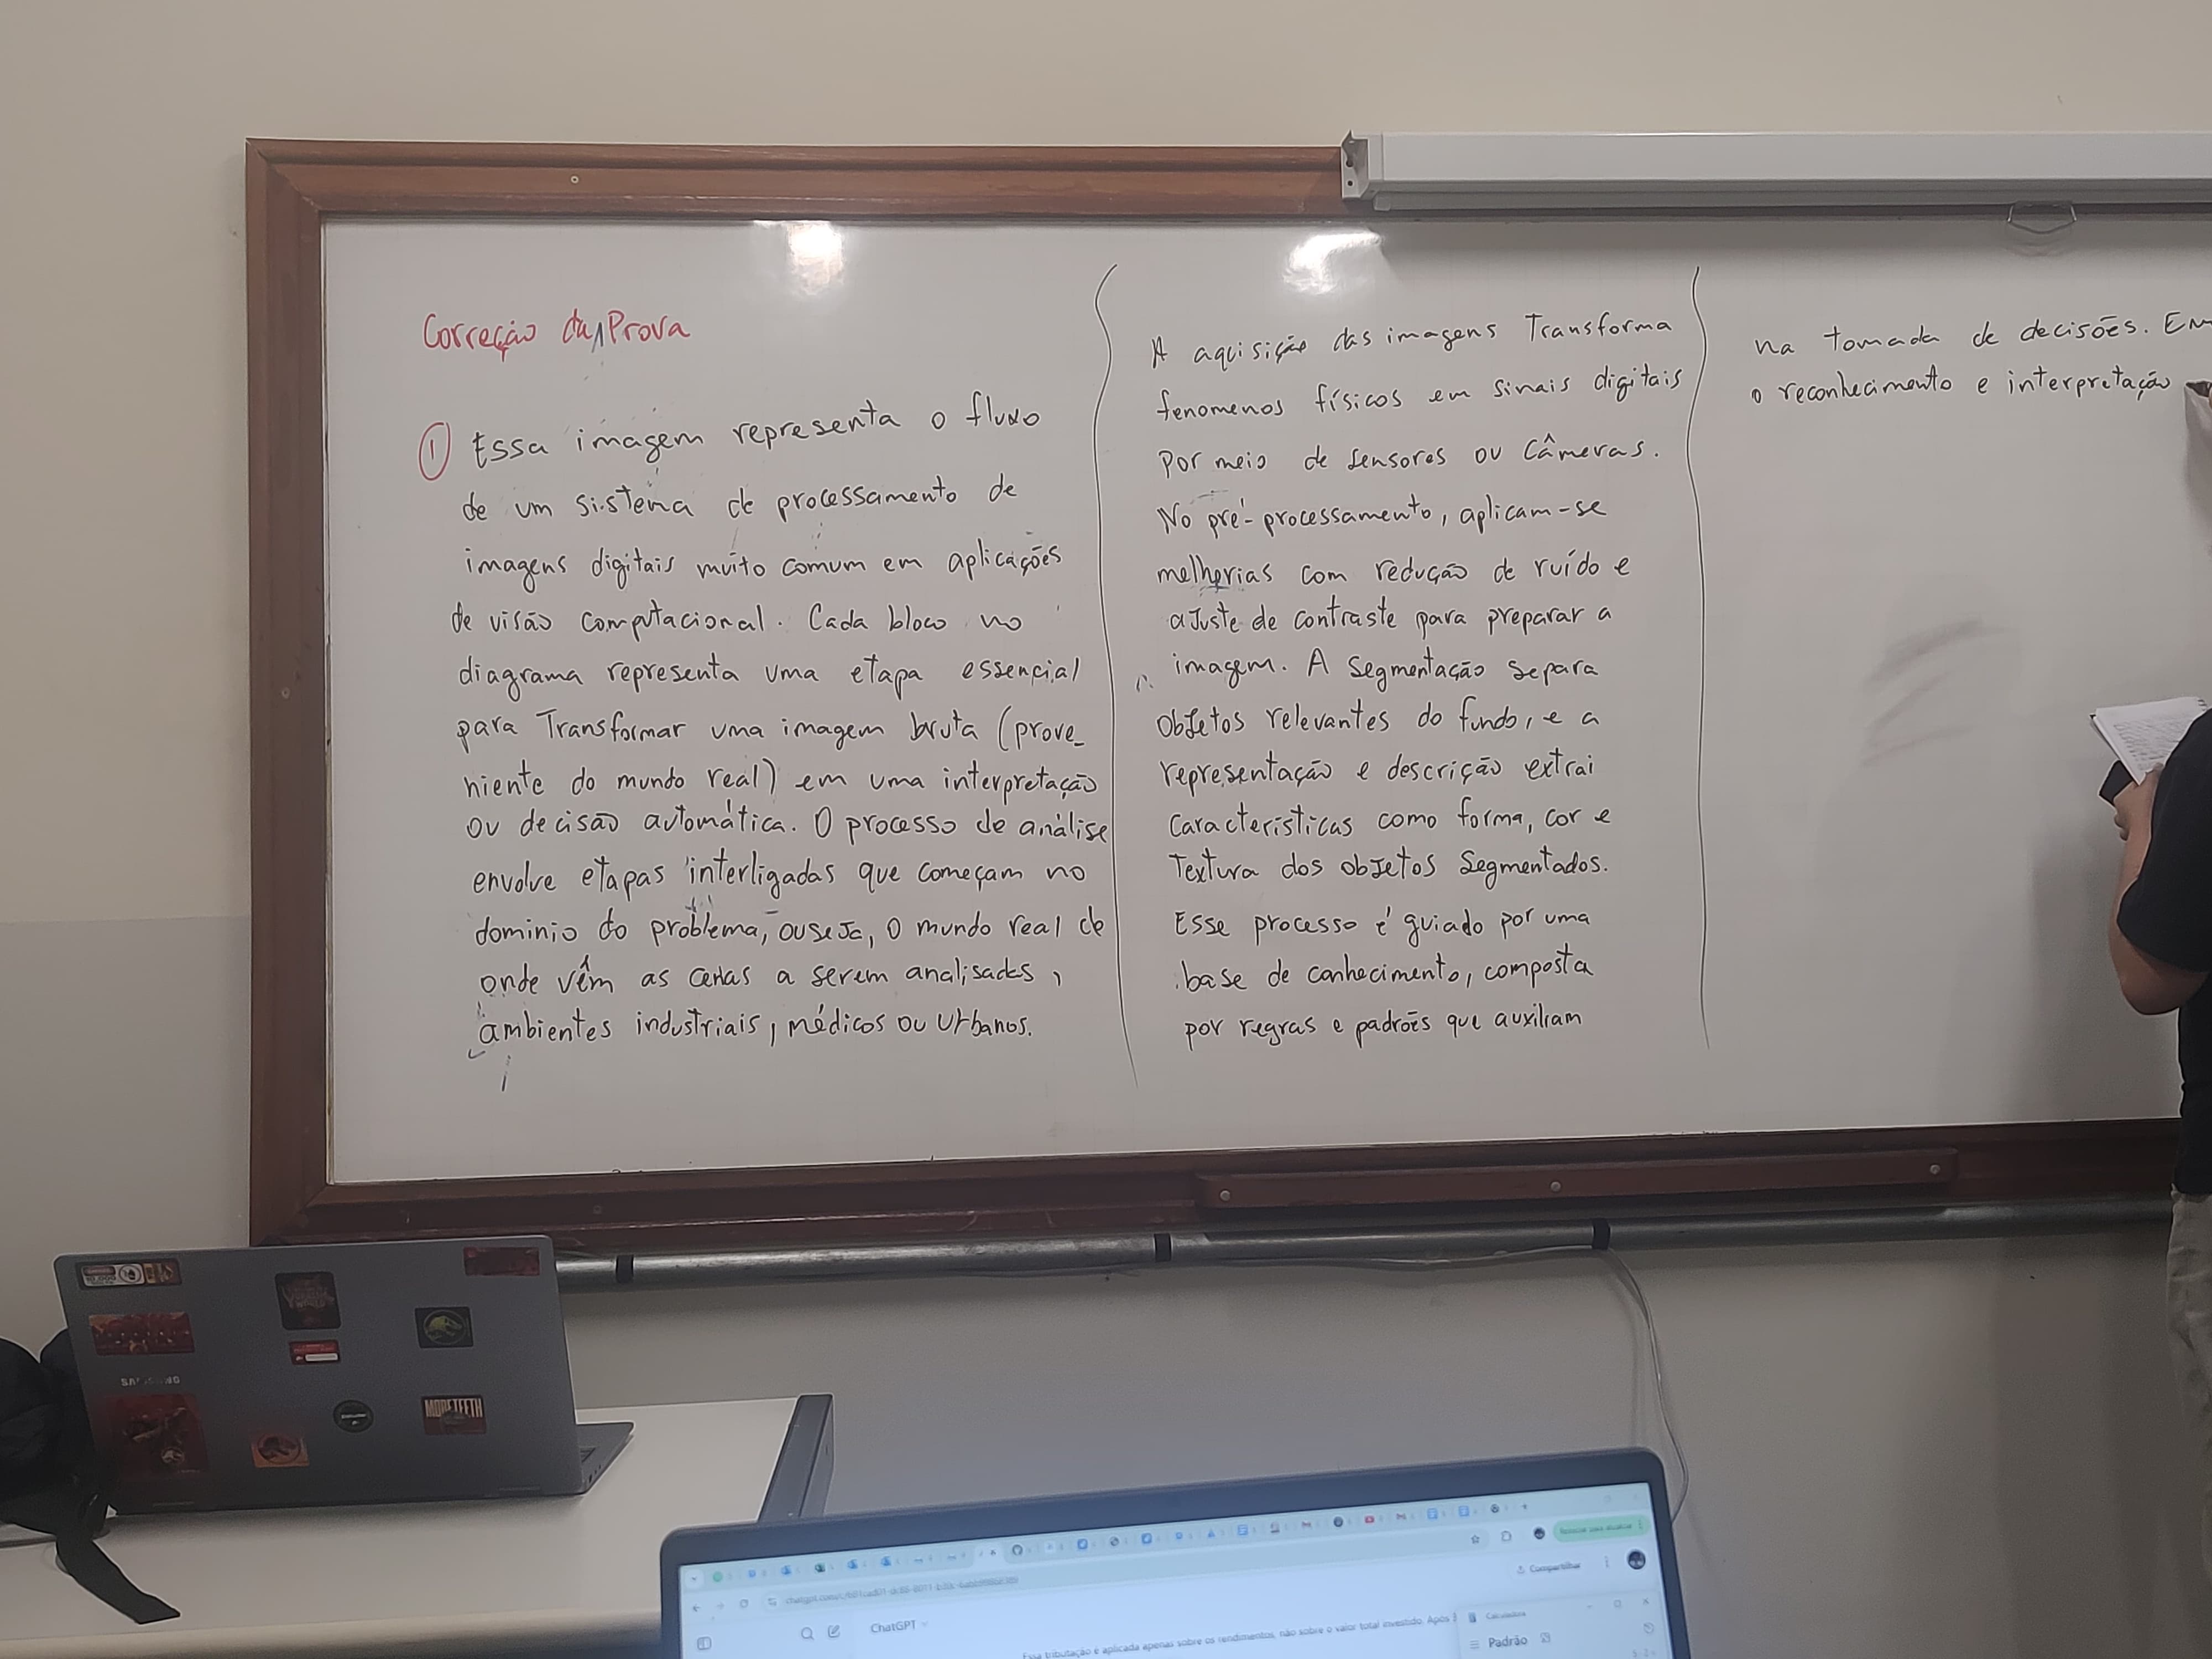 Correção da Prova
1 Essa imagem representa o fluxo
de um sistema de processamento de
imagens digitais muito comum em aplicações
de visão computacional. Cada bloco no
diagrama representa uma etapa essencial
para Transformar uma imagem bruta (prove_
niente do mundo real) em uma interpretação
ou decisão automática. O processo de análise
envolve etapas interligadas que começam no
dominio do problema, ou seja, o mundo real de
onde vêm as cenas a serem analisadas,
ambientes industriais, médicos ou urbanos.
A aquisição das imagens Transforma
fenomenos físicos em sinais digitais
por meio de sensores ou Câmeras.
No pré-processamento, aplicam-se
melhorias com redução de ruído e
ajuste de contraste para preparar a
imagem. A Segmentação separa
objetos relevantes do fundo, e a
representação e descrição extrai
características como forma, cor e
Textura dos objetos Segmentados.
Esse processo é guiado por uma
base de conhecimento, composta
por regras e padrões que auxiliam
na tomada de decisões. Em
o reconhecimento e interpretação
SAMSUNG
MORE TEETH
Compartilhar
ChatGPT
Essa tributação é aplicada apenas sobre os rendimentos, não sobre o valor total investido. Após
Calculadora
Padrão